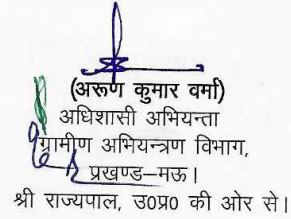 (अरूण कुमार वर्मा)
अधिशासी अभियन्ता
ग्रामीण अभियन्त्रण विभाग,
प्रखण्ड–मऊ।
श्री राज्यपाल, उ0प्र0 की ओर से।